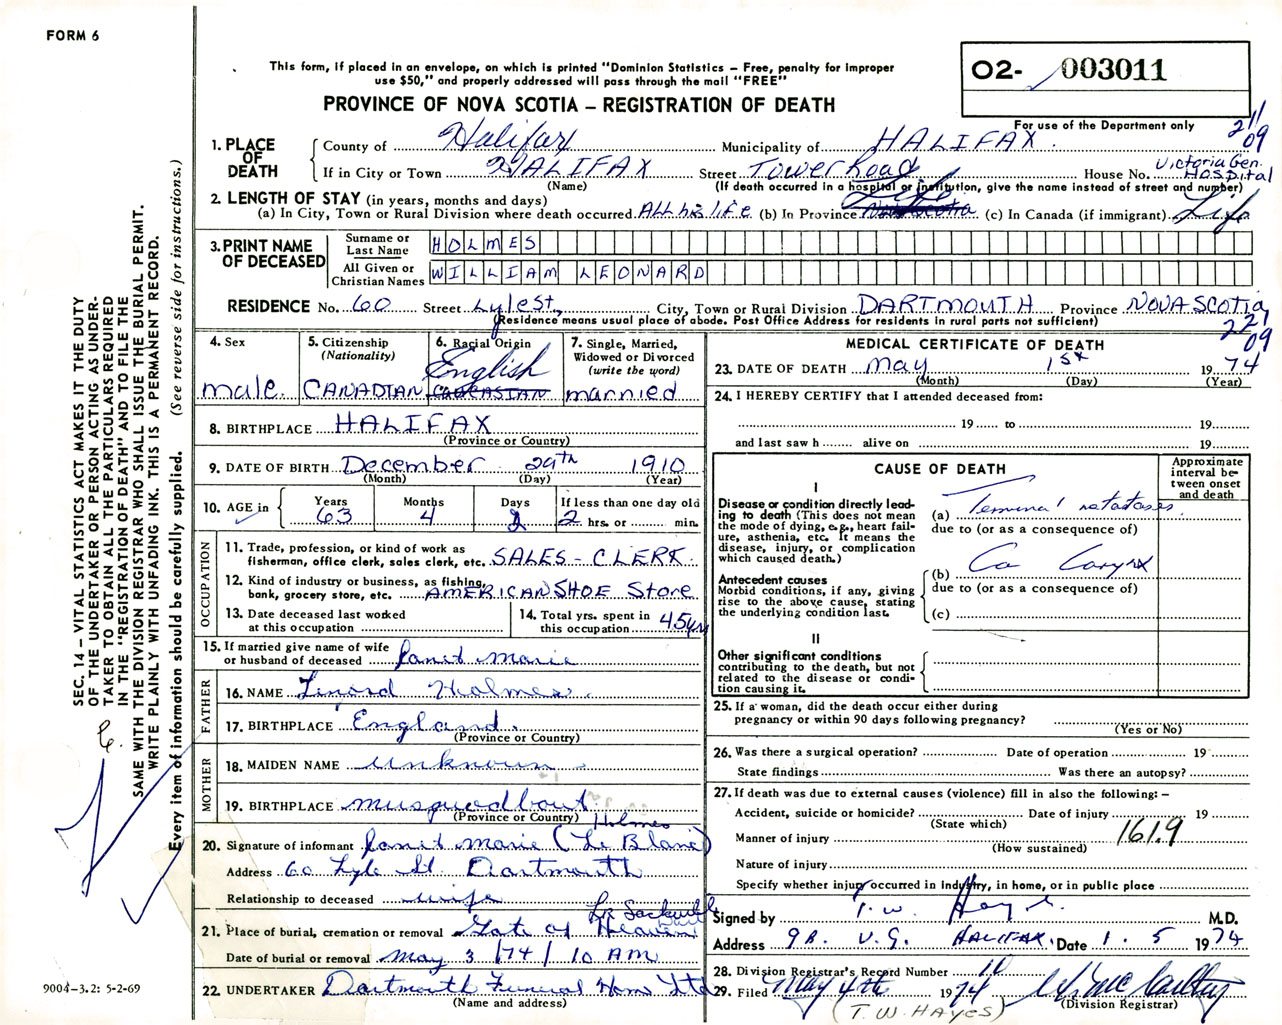 FORM 6
This form, if placed in an envelope, on which is printed "Dominion Statistics – Free, penalty for improper
use $50," and properly addressed will pass through the mail "FREE"
PROVINCE OF NOVA SCOTIA – REGISTRATION OF DEATH
O2- 003011
For use of the Department only
211
09
1. PLACE OF DEATH
County of Halifax Municipality of HALIFAX.
If in City or Town HALIFAX Street Tower Road House No. Victoria Gen. Hospital
(Name) (If death occurred in a hospital or institution, give the name instead of street and number)
2. LENGTH OF STAY (in years, months and days)
(a) In City, Town or Rural Division where death occurred ALL his life (b) In Province Life Nova Scotia (c) In Canada (if immigrant) Life
3. PRINT NAME OF DECEASED
Surname or Last Name HOLMES
All Given or Christian Names WILLIAM LEONARD
RESIDENCE No. 60 Street Lyle St, City, Town or Rural Division DARTMOUTH Province NOVA SCOTIA
(Residence means usual place of abode. Post Office Address for residents in rural parts not sufficient)
221
09
4. Sex
male.
5. Citizenship
(Nationality)
CANADIAN
6. Racial Origin
English
CAUCASIAN
7. Single, Married,
Widowed or Divorced
(write the word)
married
8. BIRTHPLACE HALIFAX
(Province or Country)
9. DATE OF BIRTH December 29th 1910
(Month) (Day) (Year)
10. AGE in
Years Months Days If less than one day old
63 4 2 2 hrs. or min.
OCCUPATION
11. Trade, profession, or kind of work as
fisherman, office clerk, sales clerk, etc. SALES-CLERK.
12. Kind of industry or business, as fishing,
bank, grocery store, etc. AMERICAN SHOE Store
13. Date deceased last worked
at this occupation
14. Total yrs. spent in
this occupation 45yrs
15. If married give name of wife
or husband of deceased Janet Marie
FATHER
16. NAME Holmes.
17. BIRTHPLACE England.
(Province or Country)
MOTHER
18. MAIDEN NAME unknown
19. BIRTHPLACE Musquodbout
(Province or Country)
Holmes
20. Signature of informant Janet Marie (Le Blanc)
Address 60 Lyle St. Dartmouth
Relationship to deceased wife
Lr Sackville
21. Place of burial, cremation or removal Gate of Heaven
Date of burial or removal May 3 /74 / 10 AM
22. UNDERTAKER Dartmouth Funeral Home Ltd
(Name and address)
MEDICAL CERTIFICATE OF DEATH
23. DATE OF DEATH May 1st 1974
(Month) (Day) (Year)
24. I HEREBY CERTIFY that I attended deceased from:
19 to 19
and last saw h alive on 19
CAUSE OF DEATH
Approximate interval between onset and death
I
Disease or condition directly leading to death (This does not mean the mode of dying, e.g., heart failure, asthenia, etc. It means the disease, injury, or complication which caused death.)
(a) Terminal metastases.
due to (or as a consequence of)
Antecedent causes
Morbid conditions, if any, giving rise to the above cause, stating the underlying condition last.
(b) Ca Larynx
due to (or as a consequence of)
(c)
II
Other significant conditions
contributing to the death, but not related to the disease or condition causing it.
25. If a woman, did the death occur either during
pregnancy or within 90 days following pregnancy?
(Yes or No)
26. Was there a surgical operation? Date of operation 19
State findings Was there an autopsy?
27. If death was due to external causes (violence) fill in also the following: –
Accident, suicide or homicide? Date of injury 19
(State which)
Manner of injury 161.9
(How sustained)
Nature of injury
Specify whether injury occurred in Industry, in home, or in public place
Signed by T. W. Hayes M.D.
Address 9B. V.G. HALIFAX. Date 1. 5 1974
28. Division Registrar's Record Number 10
29. Filed May 4th 1974
(Division Registrar)
(T. W. HAYES)
SEC. 14 – VITAL STATISTICS ACT MAKES IT THE DUTY
OF THE UNDERTAKER OR PERSON ACTING AS UNDER-
TAKER TO OBTAIN ALL THE PARTICULARS REQUIRED
IN THE "REGISTRATION OF DEATH" AND TO FILE THE
SAME WITH THE DIVISION REGISTRAR WHO SHALL ISSUE THE BURIAL PERMIT.
WRITE PLAINLY WITH UNFADING INK. THIS IS A PERMANENT RECORD.
Every item of information should be carefully supplied. (See reverse side for instructions.)
9004-3.2: 5-2-69